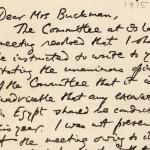 1975
Dear Mrs Buckman,
The Committee at its la
meeting resolved that I sho
be instructed to write to y
stating the unanimous opin
of the Committee that it is
inadvisable that any excava
in Egypt should be conduct
this year. I was at present
of the meeting owing to i